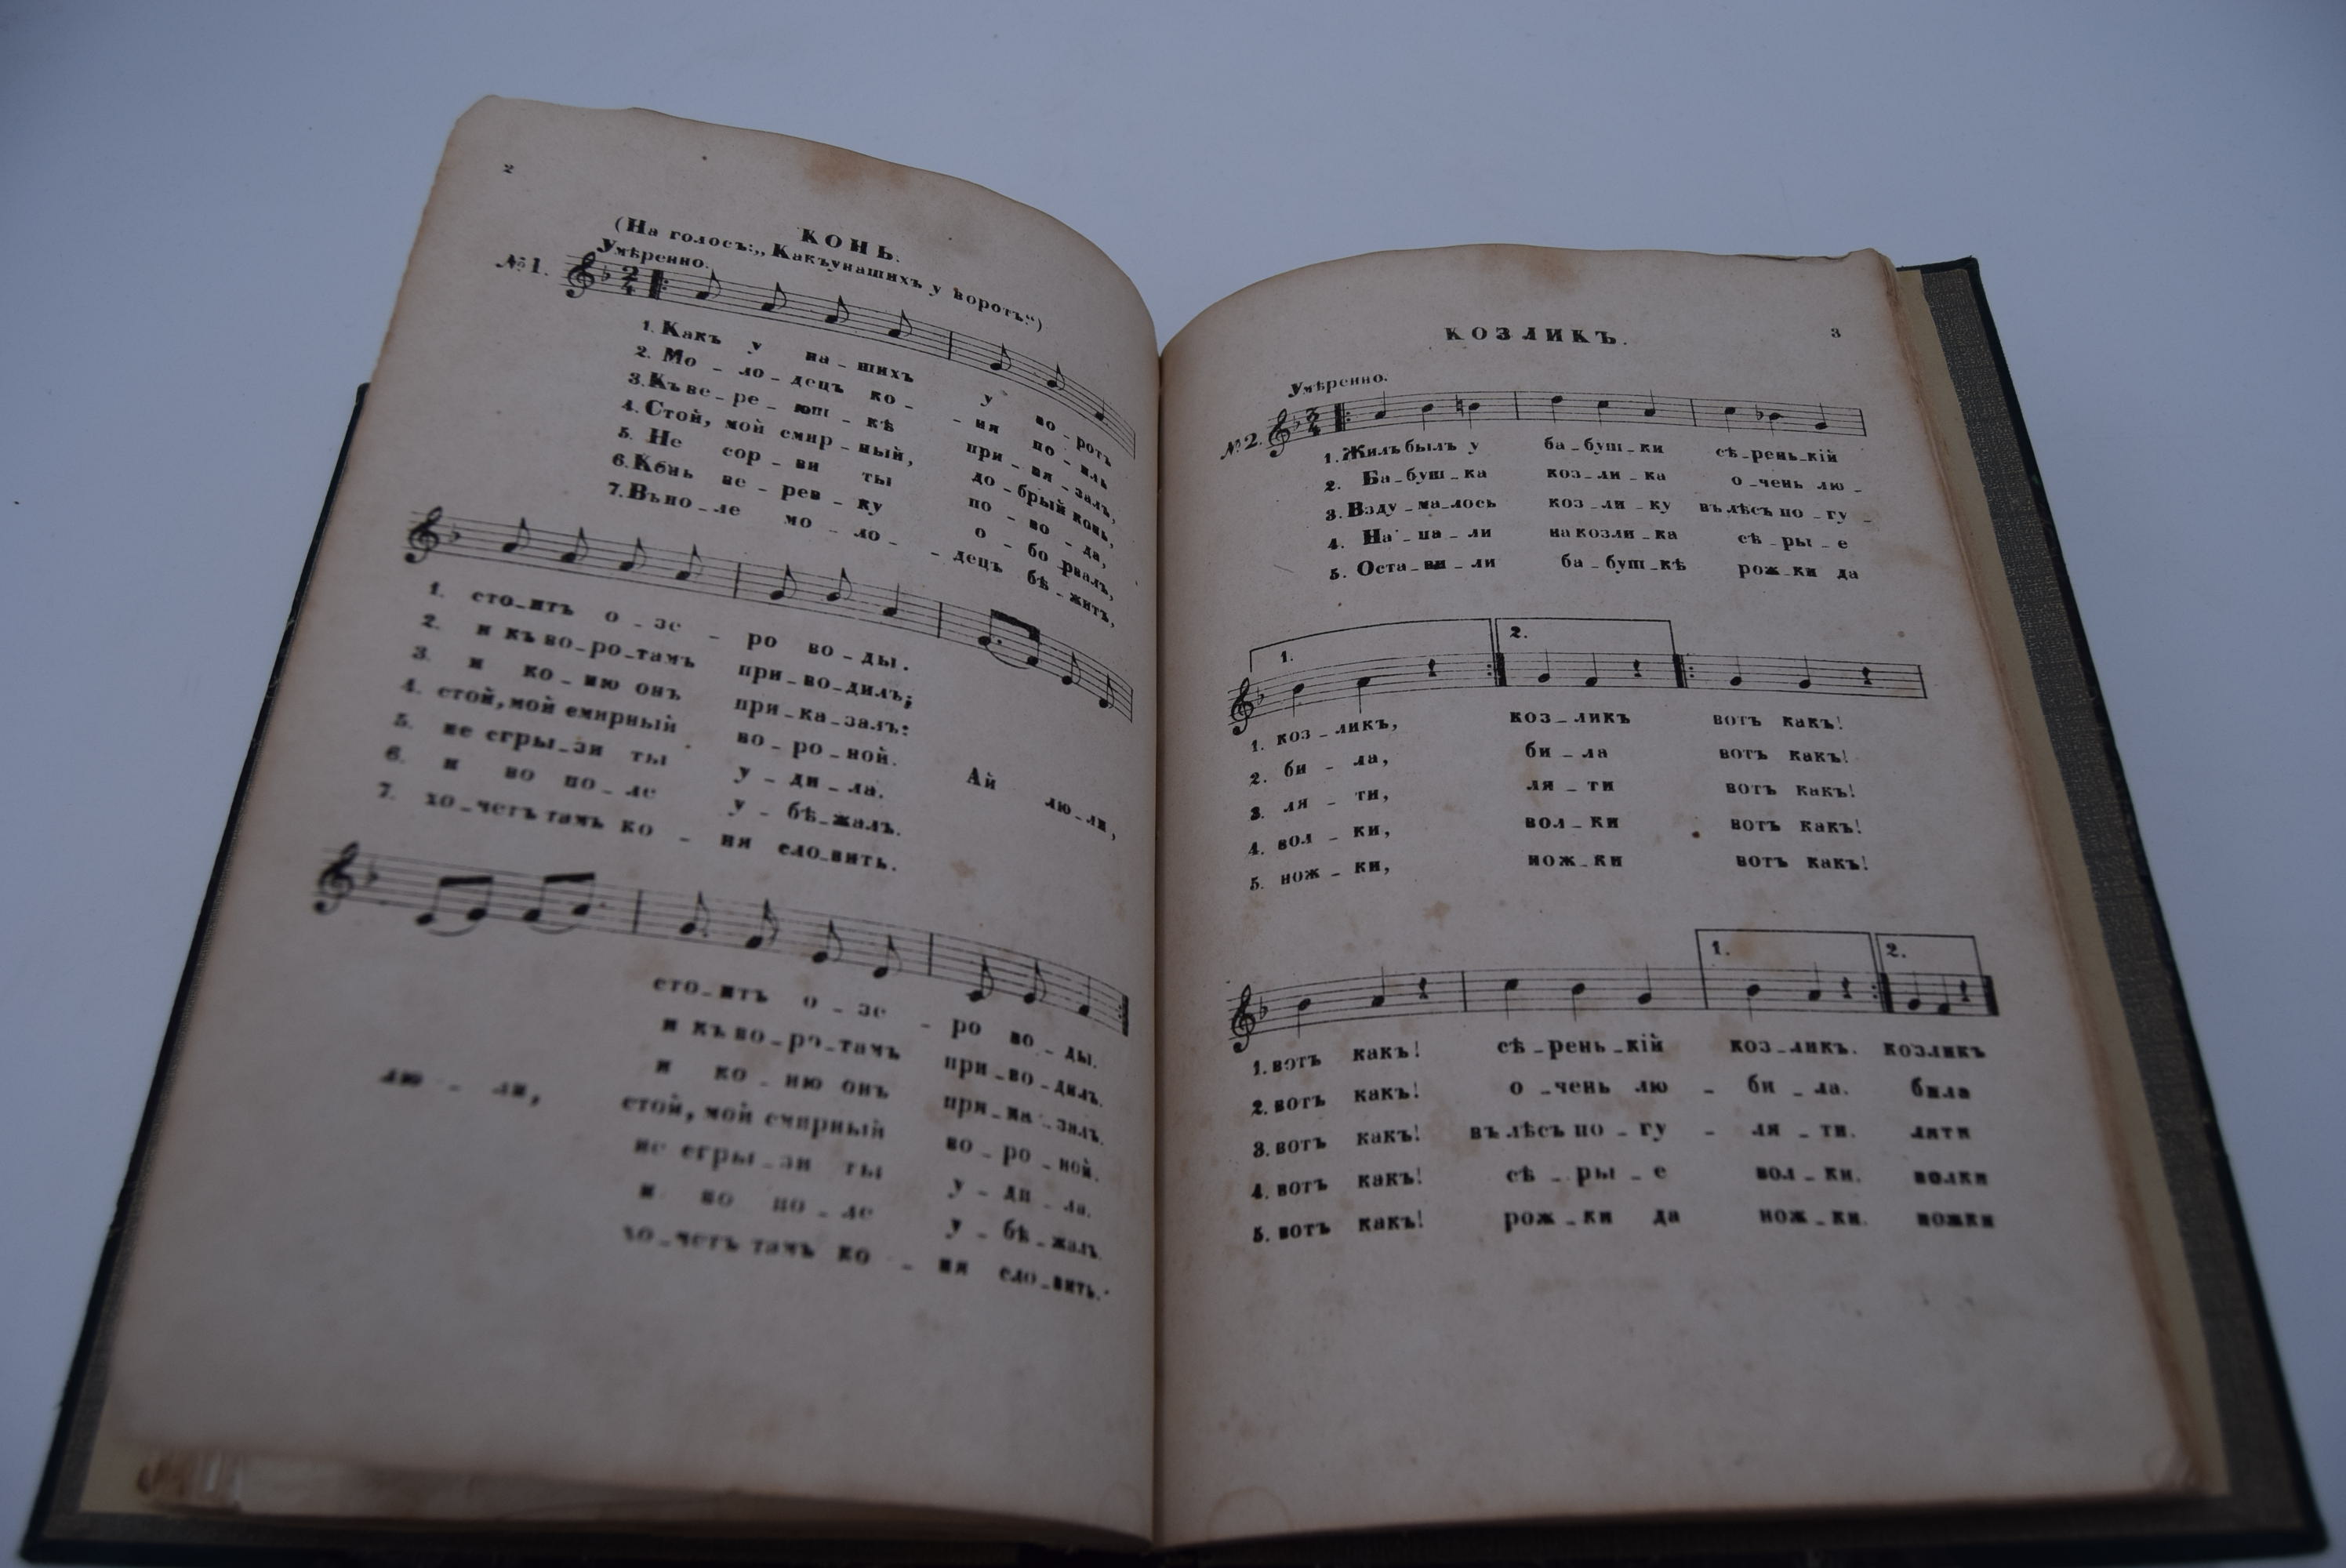 2
КОНЬ.
(На голосъ: „Какъ у нашихъ у воротъ:“)
Умѣренно.
№1.
1. Какъ у на_шихъ у во_ротъ
2. Мо_ло_децъ ко_ _ня по_илъ
3. Къ ве_ре_юш_кѣ при_вя_залъ,
4. Стой, мой смир_ный, до_брый конь,
5. Не сор_ви ты по_во_да,
6. Конь ве_рев_ку о_бо рвалъ,
7. Въ по_ле мо_ло_ _децъ бѣ_житъ,
1. сто_итъ о_зе_ро во_ды.
2. и къ во_ро_тамъ при_во_дилъ;
3. и ко_ню онъ при_ка_залъ:
4. стой, мой смирный во_ро_ной. Ай лю_ли,
5. не сгры_зи ты у_ди_ла.
6. и во по_ле у_бѣ_жалъ.
7. хо_четъ тамъ ко_ня сло_вить.
сто_итъ о_зе_ро во_ды.
и къ во_ро_тамъ при_во_дилъ.
лю_ _ли, и ко_ню онъ при_ка_залъ.
стой, мой смирный во_ро_ной.
не сгры_зи ты у_ди_ла.
и во по_ле у_бѣ_жалъ.
хо_четъ тамъ ко_ня сло_вить.
3
КОЗЛИКЪ.
Умѣренно.
№2.
1. Жилъ былъ у ба_буш_ки сѣ_рень_кій
2. Ба_буш_ка коз_ли_ка о_чень лю_
3. Взду_ма_лось коз_ли_ку въ лѣсъ по_гу_
4. На_па_ли на козли_ка сѣ_ры_е
5. Оста_ви_ли ба_буш_кѣ рож_ки да
1. 2.
1. коз_ликъ, коз_ликъ вотъ какъ!
2. би_ла, би_ла вотъ какъ!
3. ля_ти, ля_ти вотъ какъ!
4. вол_ки, вол_ки вотъ какъ!
5. нож_ки, нож_ки вотъ какъ!
1. 2.
1. вотъ какъ! сѣ_рень_кій коз_ликъ. козликъ
2. вотъ какъ! о_чень лю_би_ла. била
3. вотъ какъ! въ лѣсъ по_гу_ля_ти. ляти
4. вотъ какъ! сѣ_ры_е вол_ки. волки
5. вотъ какъ! рож_ки да нож_ки. ножки